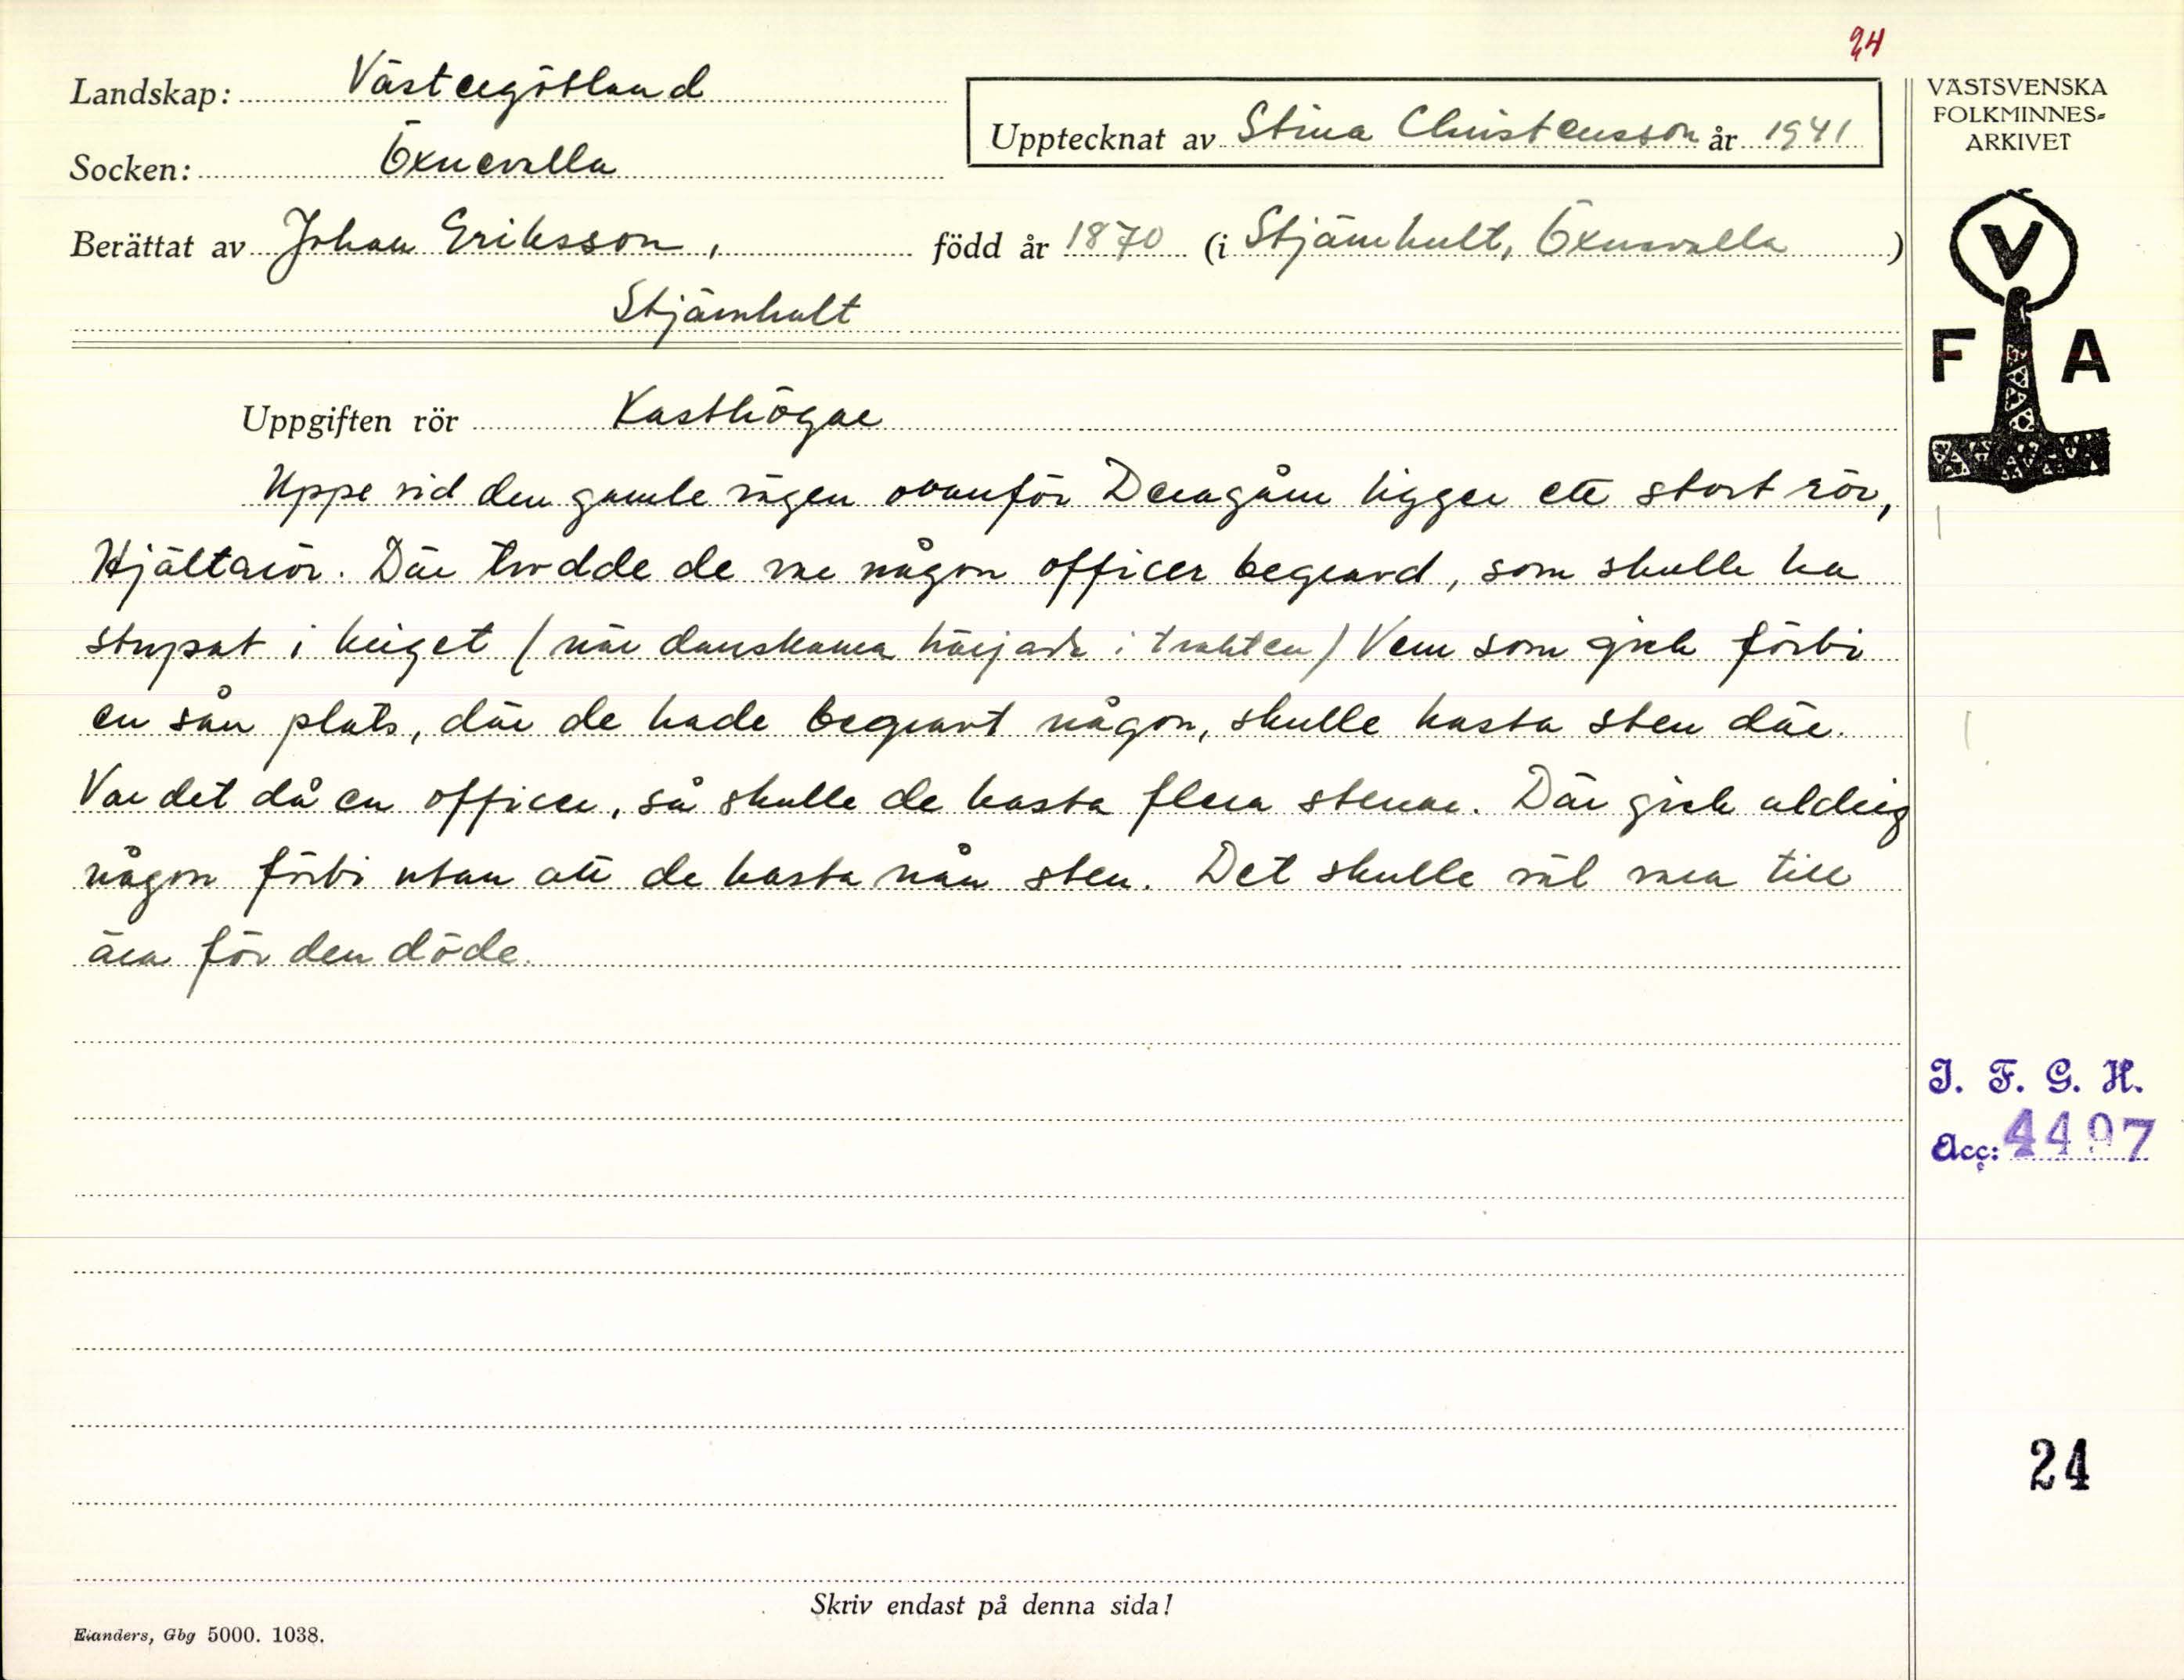 24
Landskap: Västergötland
Socken: Öxnevalla
Upptecknat av Stina Christensson år 1941
Berättat av Johan Eriksson, född år 1870 (i Stjämhult, Öxnevalla)
Stjämhult
VÄSTSVENSKA
FOLKMINNES-
ARKIVET
V
F A
Uppgiften rör Kasthögar
Uppe vid den gamle vägen ovanför ligger ett stort rör,
Hjältarör. Där trodde de va någon officer begravd, som skulle ha
stupat i kriget (när danskarna härjade i trakten) Vem som gick förbi
en sån plats, där de hade begravt någon, skulle kasta sten där.
Var det då en officer, så skulle de kasta flera stenar. Där gick aldrig
någon förbi utan att de kasta nån sten. Det skulle väl vara till
ära för den döde.
I. F. G. H.
Acc: 4497
24
Skriv endast på denna sida!
Elanders, Gbg 5000. 1038.